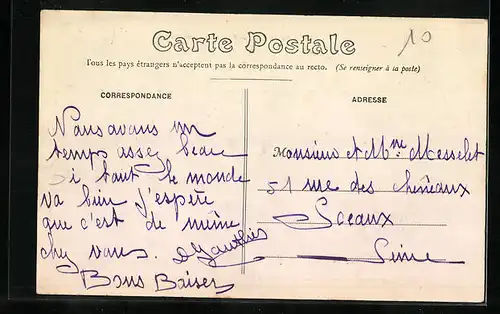 Carte Postale
10
Tous les pays étrangers n'acceptent pas la correspondance au recto. (Se renseigner à la poste)
CORRESPONDANCE
Nous avons un
temps assez beau
si tout le monde
va bien J'espère
que c'est de même
chez vous. Gauthier
Bons Baisers
ADRESSE
Monsieur et Mme Messelet
51 rue des chéneaux
Sceaux
Seine